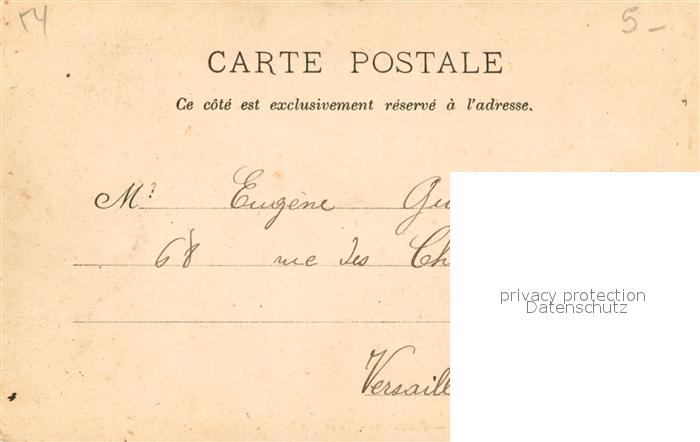 54 5-
CARTE POSTALE
Ce côté est exclusivement réservé à l'adresse.
Mr Eugène Gu
68 rue des Ch
privacy protection
Datenschutz
Versaill